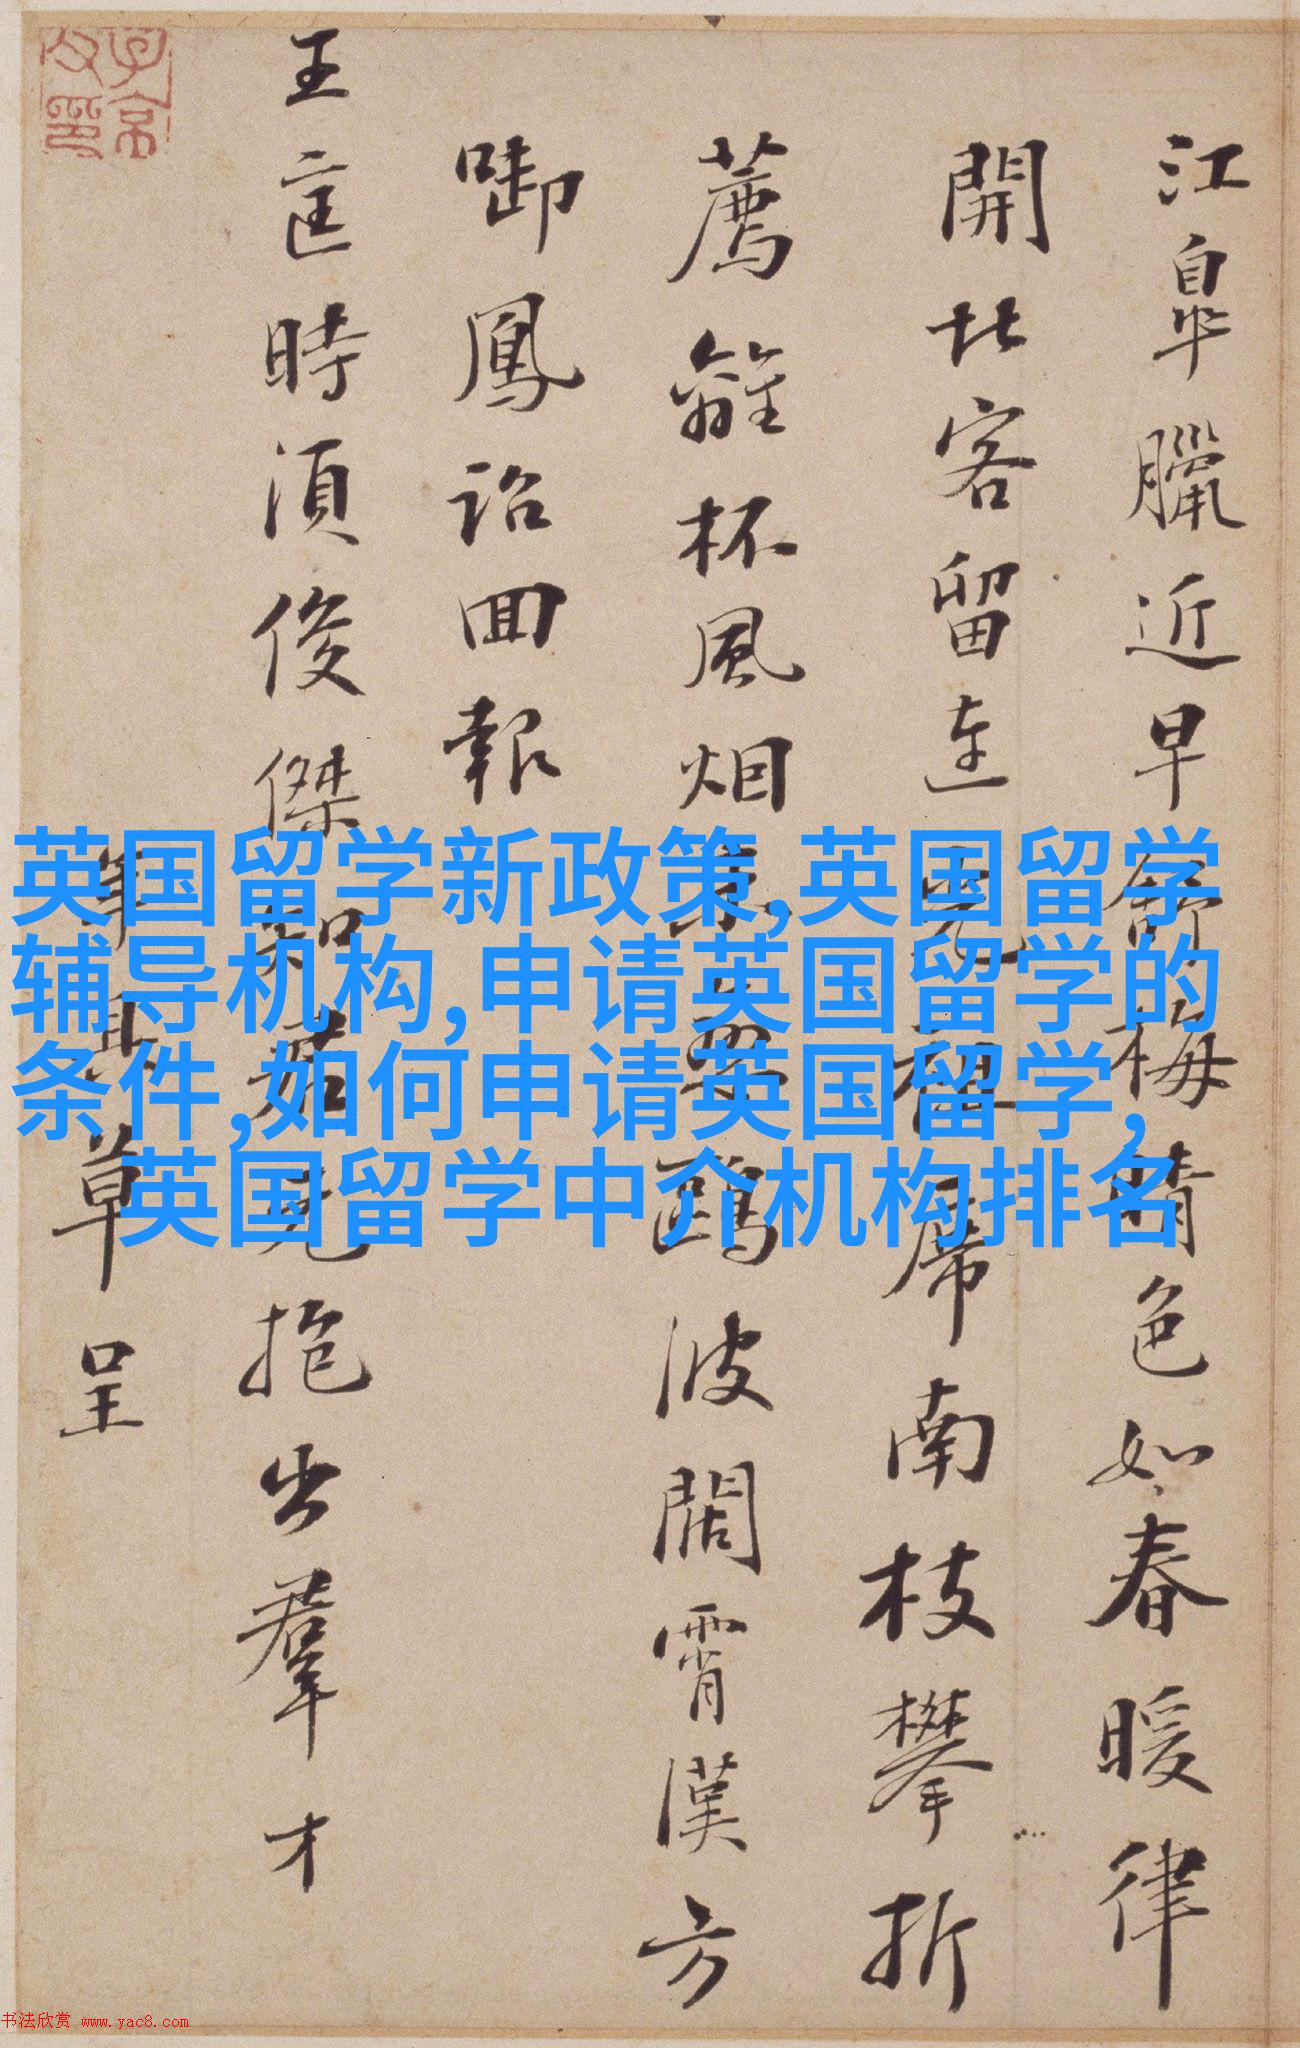 江皐臘近早舒梅晴色如春暖律
開北客留連席南枝攀折
薦離杯風烟鷗波闊霄漢方
啣鳳詔回報
王時須俊傑知君抱出羣才
草呈
英国留学新政策,英国留学
辅导机构,申请英国留学的
条件,如何申请英国留学,
英国留学中介机构排名
书法欣赏 www.yac8.com